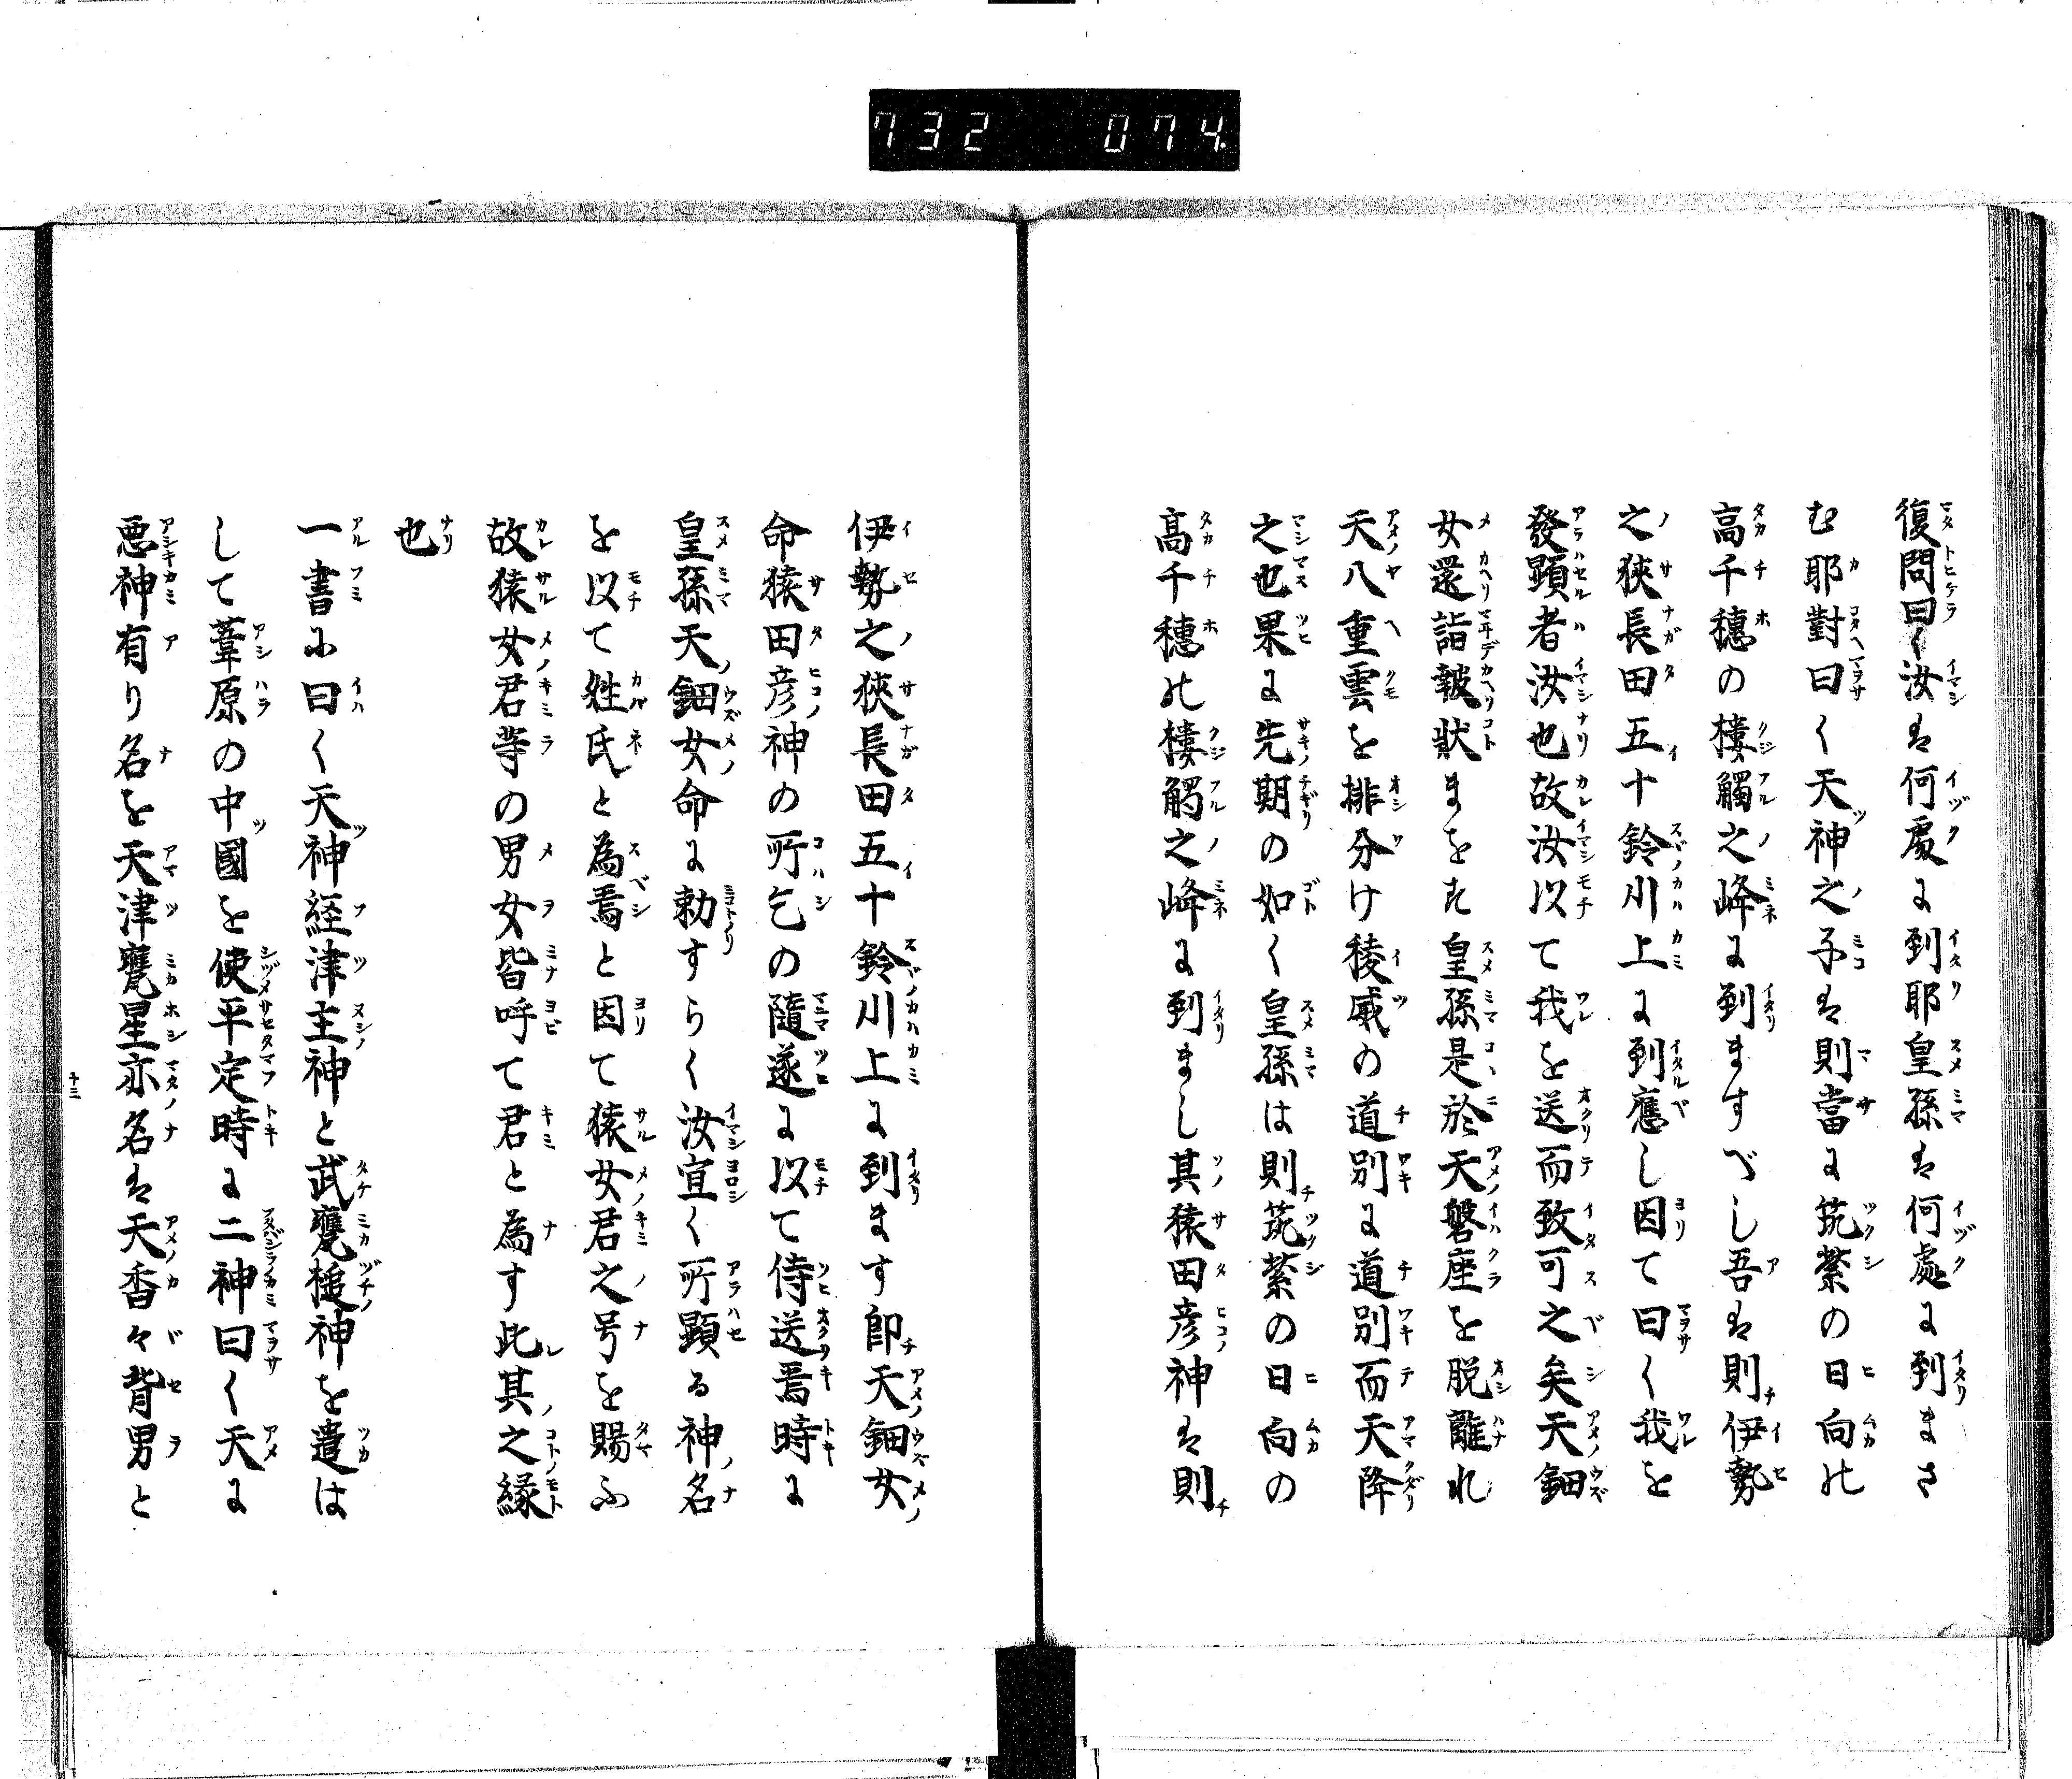 732 074
復問曰く汝は何處に到耶皇孫は何處に到まさ
む耶對曰く天神之子は則當に筑紫の日向の
高千穂の槵觸之峰に到ますべし吾は則伊勢
之狹長田五十鈴川上に到應し因て曰く我を
發顕者汝也故汝以て我を送而致可之矣天鈿
女還詣報狀まをす皇孫是於天磐座を脱離れ
天八重雲を排分け稜威の道別に道別而天降
之也果に先期の如く皇孫は則筑紫の日向の
高千穂の槵觸之峰に到まし其猿田彦神は則
伊勢之狹長田五十鈴川上に到ます即天鈿女
命猿田彦神の所乞の隨遂に以て侍送焉時に
皇孫天鈿女命に勅すらく汝宜く所顕る神名
を以て姓氏と為焉と因て猿女君之号を賜ふ
故猿女君等の男女皆呼て君と為す此其之縁
也
一書に曰く天神経津主神と武甕槌神を遣は
して葦原の中國を使平定時に二神曰く天に
悪神有り名を天津甕星亦名は天香々背男と
十三